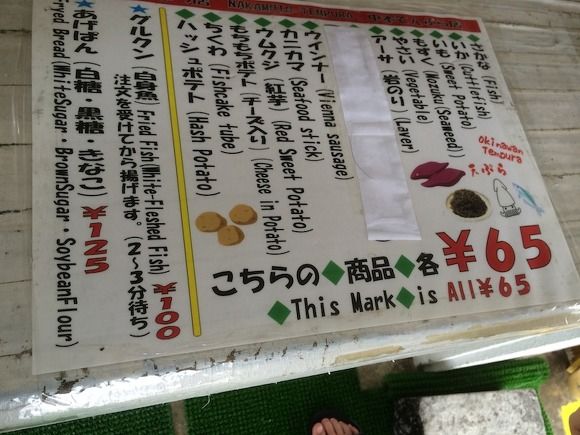 NAKAMOTO TENPURA
◆さかな (Fish)
◆いか (Cuttlefish)
◆いも (Sweet Potato)
◆もずく (Mozuku Seaweed)
◆やさい (Vegetable)
◆アーサ 岩のり (Laver)
◆ウインナー (Vienna sausage)
◆カニカマ (Seafood stick)
◆ウムクジ (紅芋) (Red Sweet Potato)
◆もちもちポテト チーズ入り (Cheese in Potato)
◆ちくわ (Fishcake tube)
◆ハッシュポテト (Hash Potato)
Okinawan
Tenpura
天ぷら
こちらの◆商品◆各¥65
◆This Mark◆is All¥65
★グルクン (白身魚) Fried Fish(White-Fleshed Fish) ¥100
注文を受けてから揚げます。(2~3分待ち)
★あげぱん (白糖・黒糖・きなこ) ¥125
Fryed Bread (WhiteSugar・BrownSugar・SoybeanFlour)